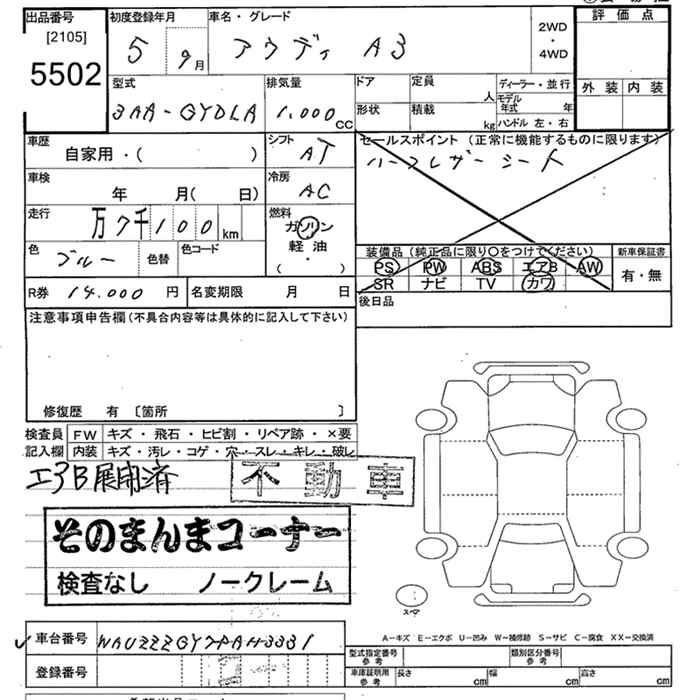 出品番号 初度登録年月 車名・グレード 評価点
[2105] 5 9月 アウディ A3 2WD・4WD
5502
型式 排気量 ドア 定員 人 ディーラー・並行 外装 内装
3AA-GYDLA 1.000cc 形状 積載 kg モデル年式 年 ハンドル 左・右
車歴 シフト セールスポイント (正常に機能するものに限ります)
自家用・( ) AT ハーフレザーシート
車検 冷房
年 月( 日) AC
走行 燃料
万7千100km ガソリン
軽油
( ・ )
色 ブルー 色替 色コード
装備品(純正品に限り○をつけてください) 新車保証書
PS PW ABS エアB AW 有・無
SR ナビ TV カワ
R券 14.000円 名変期限 月 日 後日品
注意事項申告欄(不具合内容等は具体的に記入して下さい)
修復歴 有 〔箇所 〕
検査員 FW キズ・飛石・ヒビ割・リペア跡・×要
記入欄 内装 キズ・汚レ・コゲ・穴・スレ・キレ・破レ
エアB展開済 不動車
そのまんまコーナー
検査なし ノークレーム
スペア
A-キズ E-エクボ U-凹み W-補修跡 S-サビ C-腐食 XX-交換済
車台番号 WAUZZZGY7PAH3331
型式指定番号 参考 類別区分番号 参考
登録番号
車庫証明用 参考 長さ cm 幅 cm 高さ cm